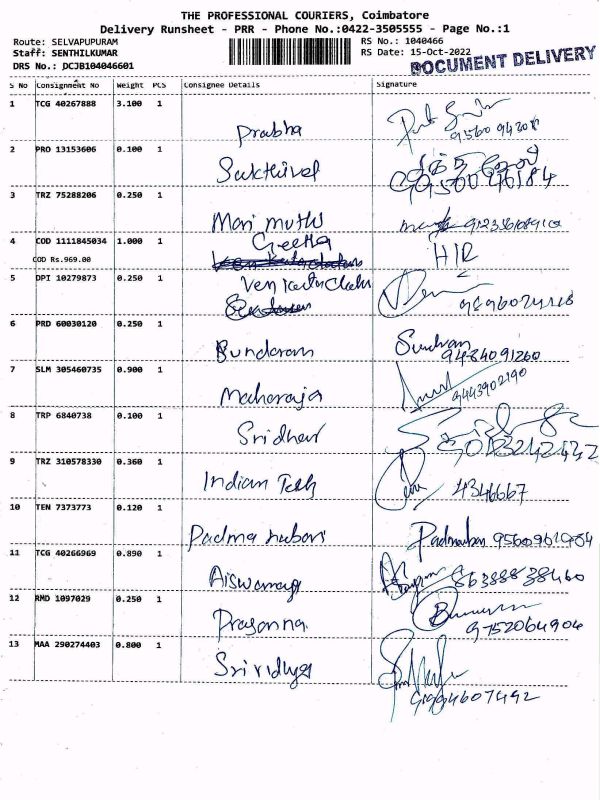 THE PROFESSIONAL COURIERS, Coimbatore
Delivery Runsheet - PRR - Phone No.:0422-3505555 - Page No.:1
Route: SELVAPUPURAM
RS No.: 1040466
Staff: SENTHILKUMAR
RS Date: 15-Oct-2022
DRS No.: DCJB104046601
DOCUMENT DELIVERY
S No Consignment No Weight PCS Consignee Details Signature
1 TCG 40267888 3.100 1
Prabha
2 PRO 13153606 0.100 1
Sakthivel
3 TRZ 75288206 0.250 1
Mari muthu
4 COD 1111845034 1.000 1 Geetha
COD Rs.969.00 H/R
5 DPI 10279873 0.250 1 Venkatachalam
6 PRD 60030120 0.250 1
Sundaram
9484091260
7 SLM 305460735 0.900 1
Maharaja 9443902190
8 TRP 6840738 0.100 1
Sridhar
9 TRZ 310578330 0.360 1
Indian Tech 4346667
10 TEN 7373773 0.120 1
Padma
11 TCG 40266969 0.890 1
8638838460
12 RMD 1097029 0.250 1
Prasanna
9752064904
13 MAA 290274403 0.800 1
Srividhya
9994607492